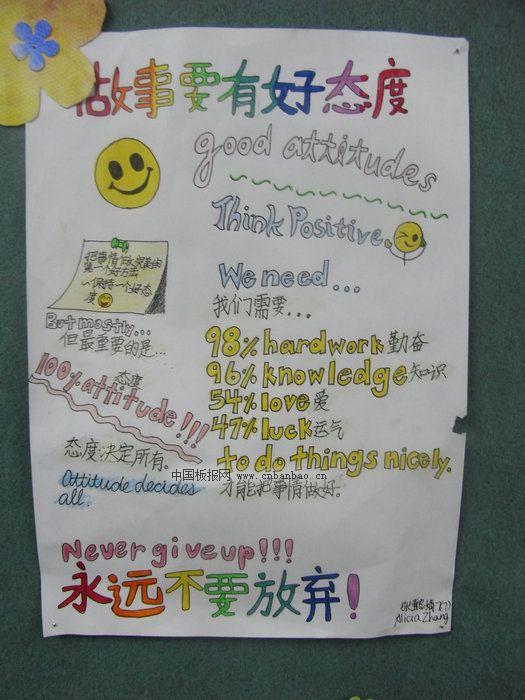 做事要有好态度
good attitudes
Think Positive.
把事情做完美的
第一个好方法
~保持一个好态
度
We need...
我们需要...
98% hardwork 勤奋
96% knowledge 知识
54% love 爱
47% luck 运气
to do things nicely.
才能把事情做好。
But mostly...
但最重要的是...
态度
100% attitude!!!
态度决定所有。
Attitude decides
all.
中国板报网 www.cnbanbao.cn
Never give up!!!
永远不要放弃!
Alicia Zhang